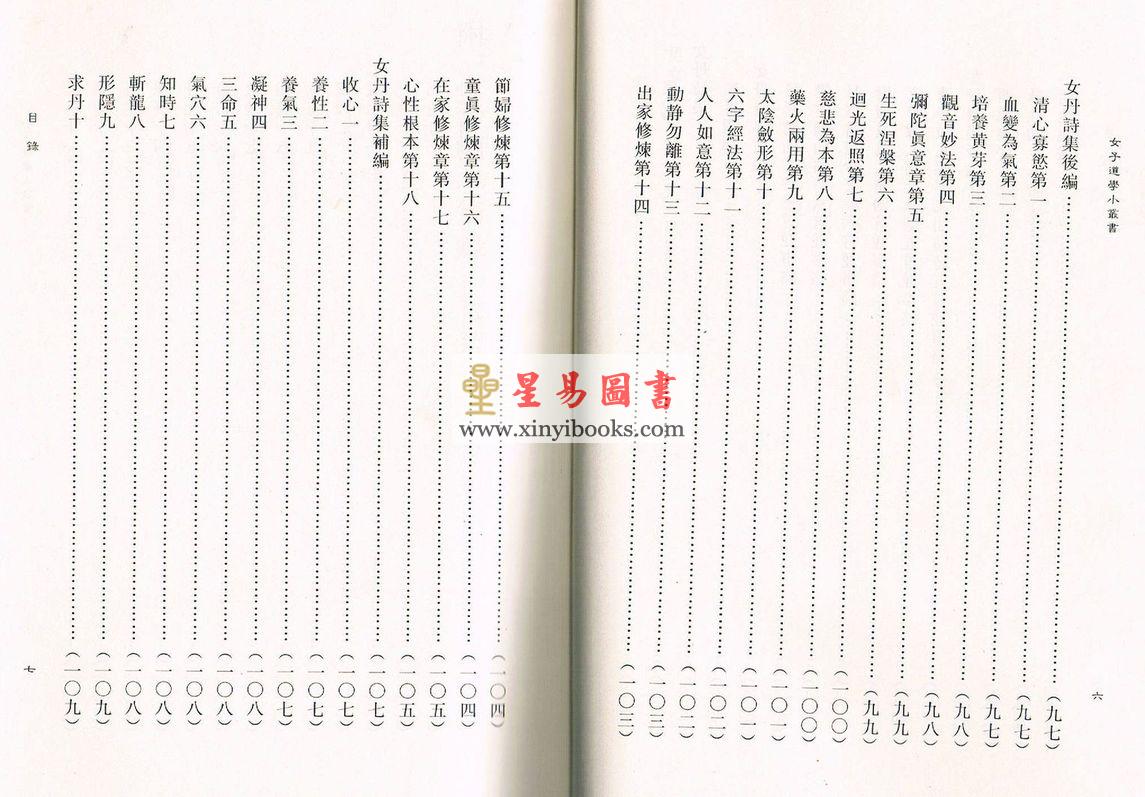 女子道學小叢書
女丹詩集後編……(九七)
清心寡慾第一……(九七)
血變為氣第二……(九七)
培養黃芽第三……(九八)
觀音妙法第四……(九八)
彌陀眞意章第五……(九九)
生死涅槃第六……(九九)
迴光返照第七……(一〇〇)
慈悲為本第八……(一〇〇)
藥火兩用第九……(一〇一)
太陰斂形第十……(一〇一)
六字經法第十一……(一〇二)
人人如意第十二……(一〇二)
動静勿離第十三……(一〇三)
出家修煉第十四……(一〇三)
六
節婦修煉第十五……(一〇四)
童眞修煉章第十六……(一〇四)
在家修煉章第十七……(一〇五)
心性根本第十八……(一〇五)
女丹詩集補編……(一〇七)
收心一……(一〇七)
養性二……(一〇七)
養氣三……(一〇七)
凝神四……(一〇八)
三命五……(一〇八)
氣穴六……(一〇八)
知時七……(一〇八)
斬龍八……(一〇八)
形隱九……(一〇九)
求丹十……(一〇九)
目錄
七
星易圖書
www.xinyibooks.com